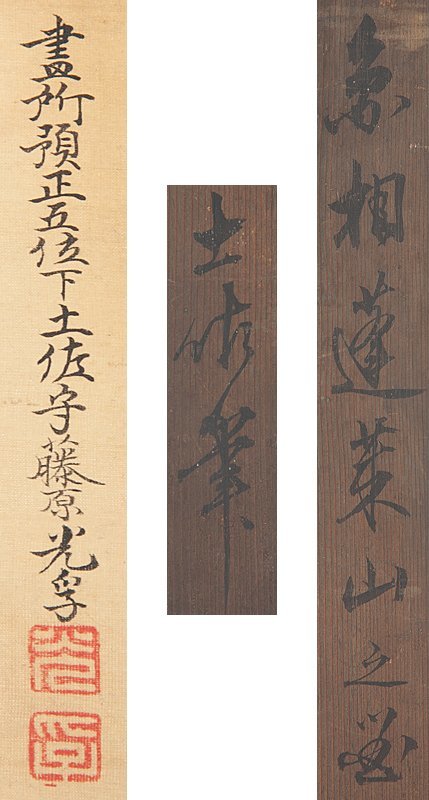 相蓬萊山之圖
土佐筆
畫所預正五位下土佐守藤原光孚